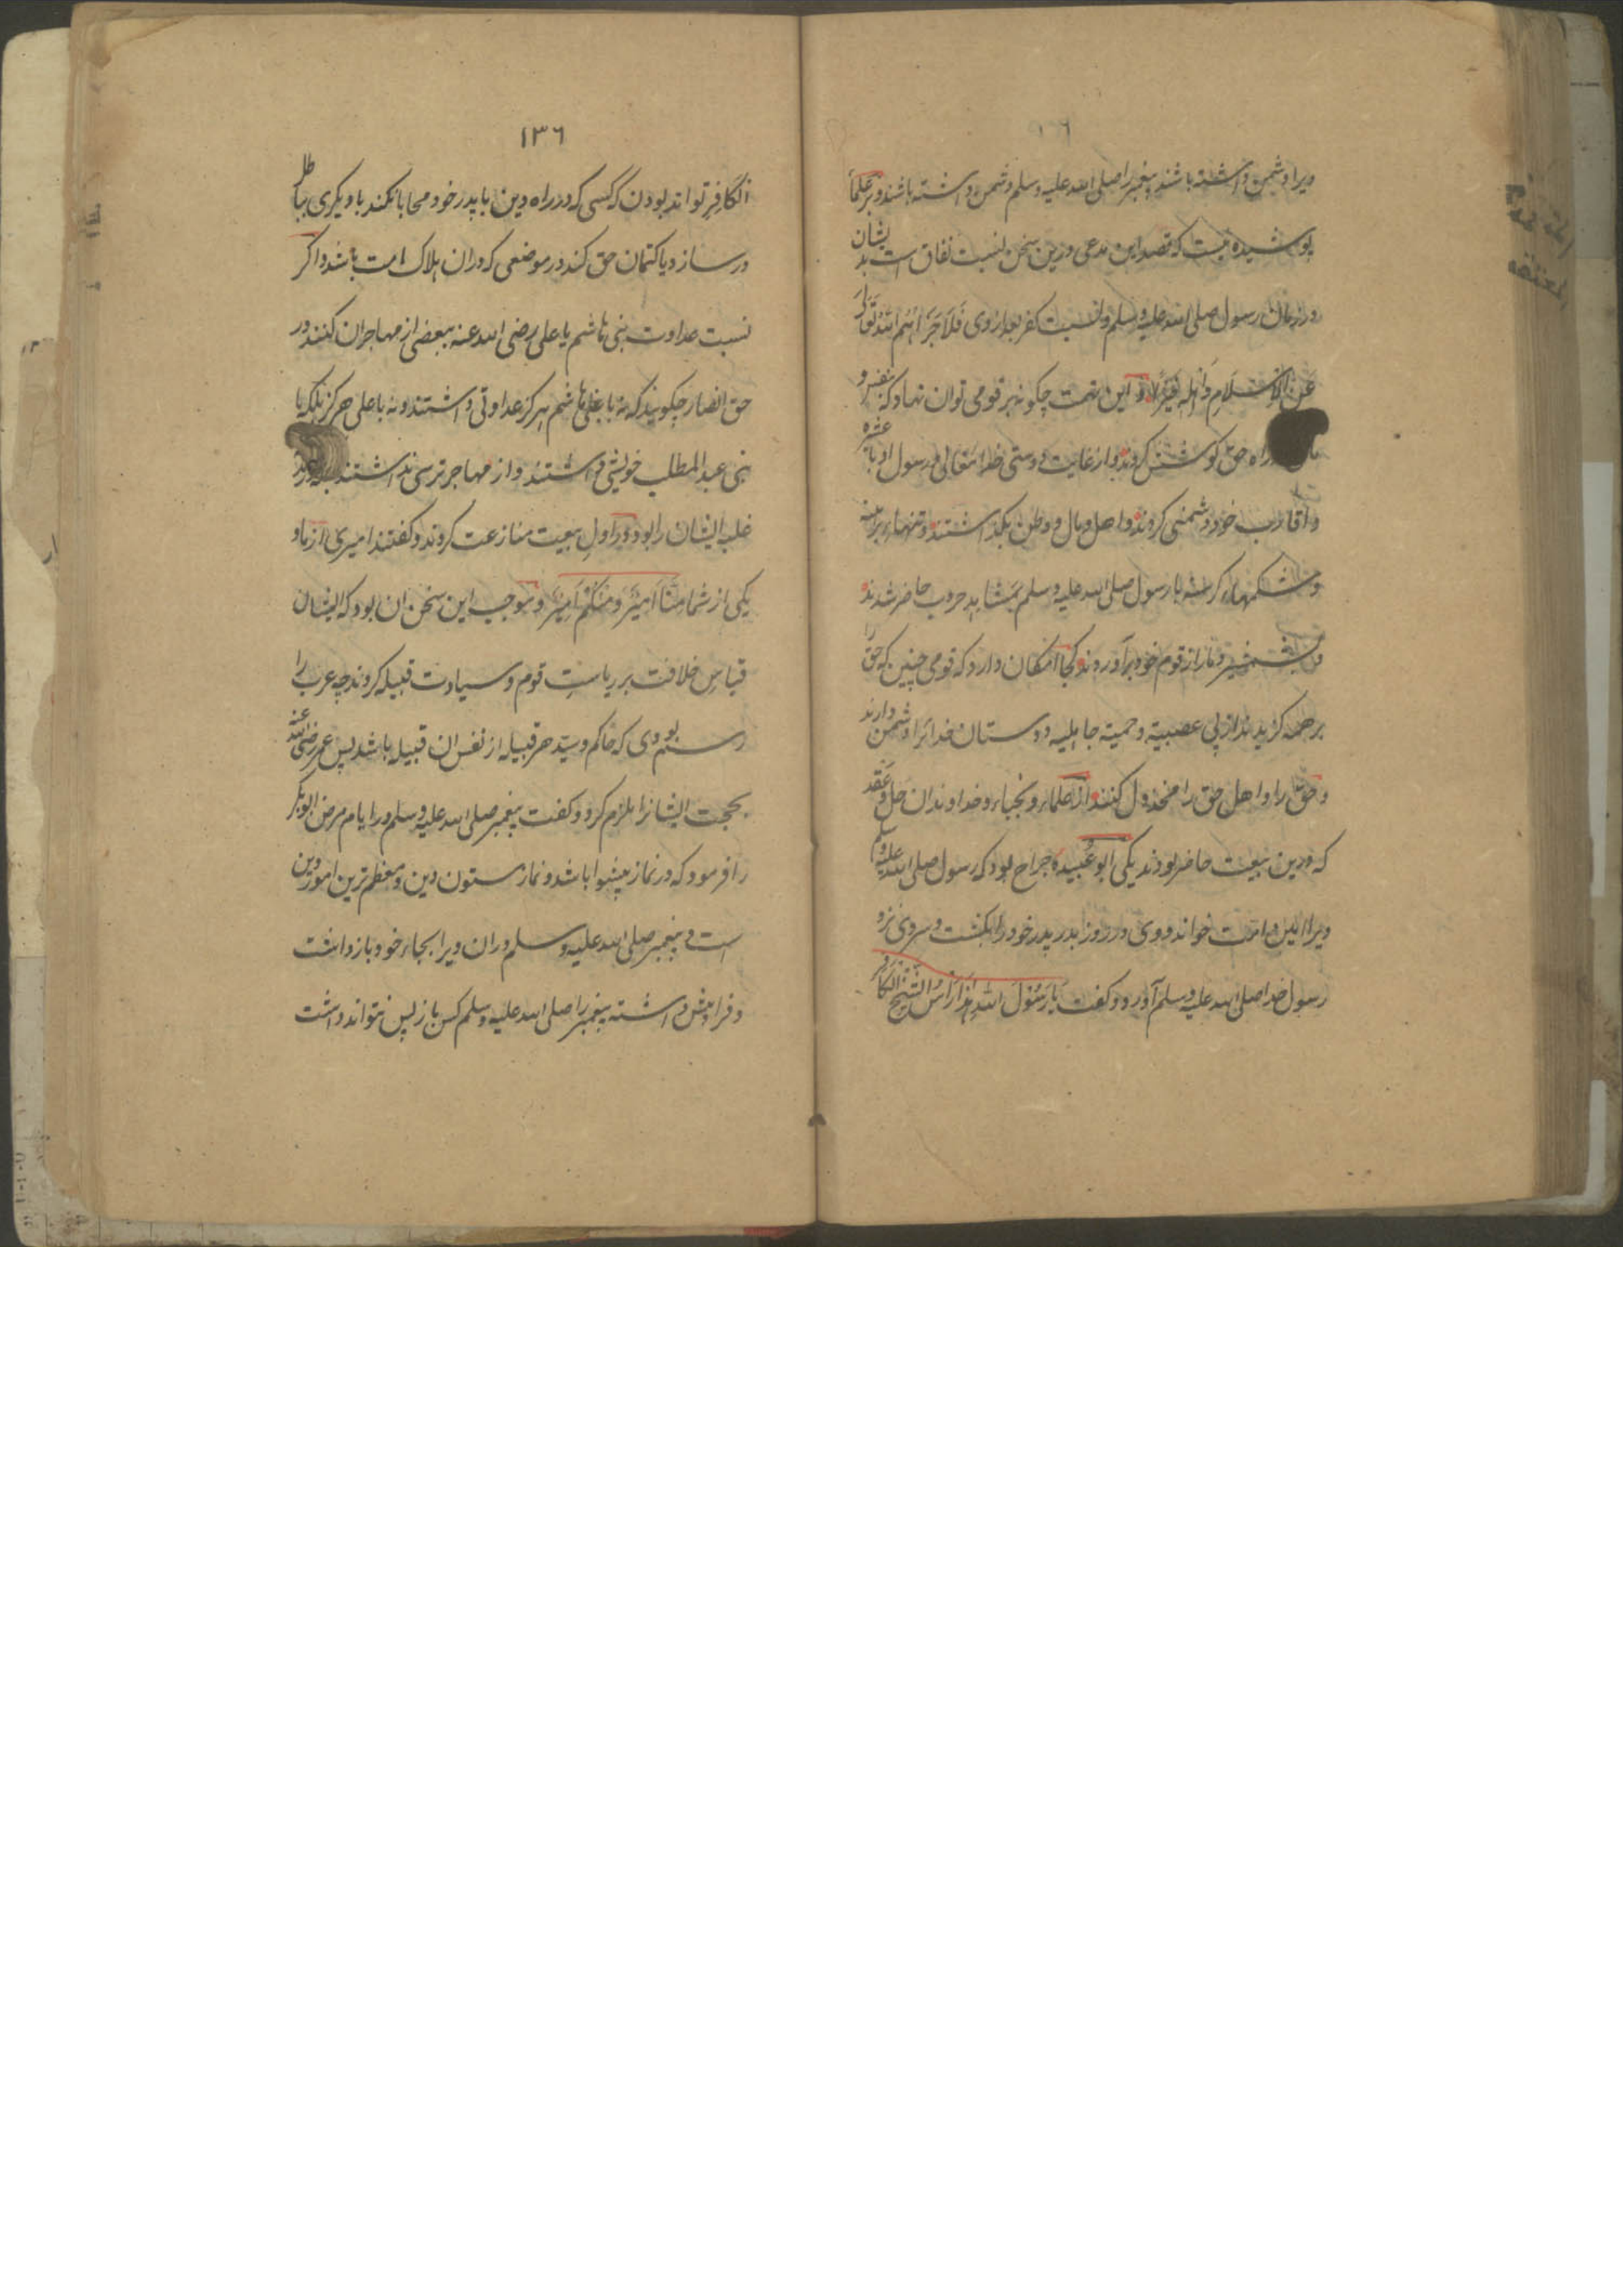 ویرا دشمن داشته باشند پیغمبر را صلی الله علیه وسلم دشمن داشته باشند و بر علماء
پوشیده نیست که قصد این مدعی درین سخن نسبت نفاق است بدیشان
در زمان رسول صلی الله علیه وسلم و نسبت کفر بعد از وی فَلَا جَزَاهُمُ اللهُ تَعَالَی
عَنِ الْاِسْلَامِ وَ اَهْلِهِ خَیْرًا و این تهمت چگونه بر قومی توان نهاد که بنفس و
راه حق کوشش کردند و از غایت دوستی خدا تعالی و رسول او با عشیره
و اقارب خود دشمنی کردند و اهل و مال و وطن بگذاشتند و تنهاء برهنه
و شکمهاء گرسنه با رسول صلی الله علیه وسلم بمشاهد حروب حاضر شدند
شمشیر دمار از قوم خود برآوردند کجا امکان دارد که قومی چنین که حق را
بر همه گزیدند از پی عصبیة و حمیة جاهلیه دوستان خدا را دشمن دارند
و حق را و اهل حق را مخذول کنند از علماء و نجباء و خداوندان حل و عقد
که درین بیعت حاضر بودند یکی ابو عبیده جراح بود که رسول صلی الله علیه وسلم
ویرا امین امت خواند و وی در روز بدر پدر خود را بکشت و سر وی نزد
رسول خدا صلی الله علیه وسلم آورد و گفت یَا رَسُوْلَ اللهِ هٰذَا رَأْسُ الشَّیْخِ الْکَافِر
۱۳۶
الکَافِرِ تواند بودن که کسی که در راه دین با پدر خود محابا نکند با دیگری بباطل
در سازد یا کتمان حق کند در موضعی که در آن هلاک امت باشد و اگر
نسبت عداوت بنی هاشم یا علی رضی الله عنه ببعضی از مهاجران کنند در
حق انصار چگویند که نه با بنی هاشم هرگز عداوتی داشتند و نه با علی هرگز بلکه با
بنی عبد المطلب خویشی داشتند و از مهاجر ترسی نداشتند
غلبه ایشان را بود و در اول بیعت منازعت کردند و گفتند امیری از ما و
یکی از شما مِنَّا اَمِیْرٌ وَ مِنْکُمْ اَمِیْرٌ و موجب این سخن ان بود که ایشان
قیاس خلافت بر ریاست قوم و سیادت قبیله کردند چه عرب را
رسم بودی که حاکم و سید هر قبیله از نفس ان قبیله باشد پس عمر رضی الله عنه
بحجت ایشانرا ملزم کرد و گفت پیغمبر صلی الله علیه وسلم در ایام مرض ابو بکر
را فرمود که در نماز پیشوا باشد و نماز ستون دین و معظم ترین امور دین
است و پیغمبر صلی الله علیه وسلم در ان ویرا بجاء خود بازداشت
و فرا پیش داشته پیغمبر را صلی الله علیه وسلم کس باز پس نتواند داشت